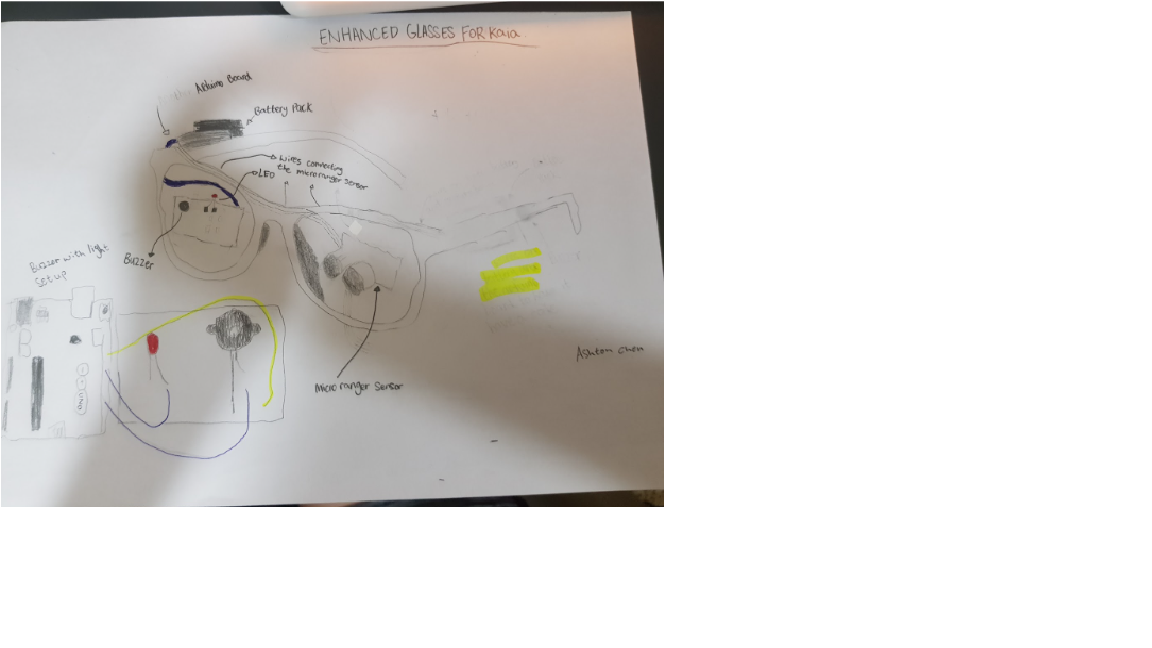 ENHANCED GLASSES FOR Kaia
Arduino Board
Battery Pack
Wires connecting
the micro ranger sensor
LED
Buzzer
Buzzer with light
set up
Micro ranger sensor
Ashton Chen